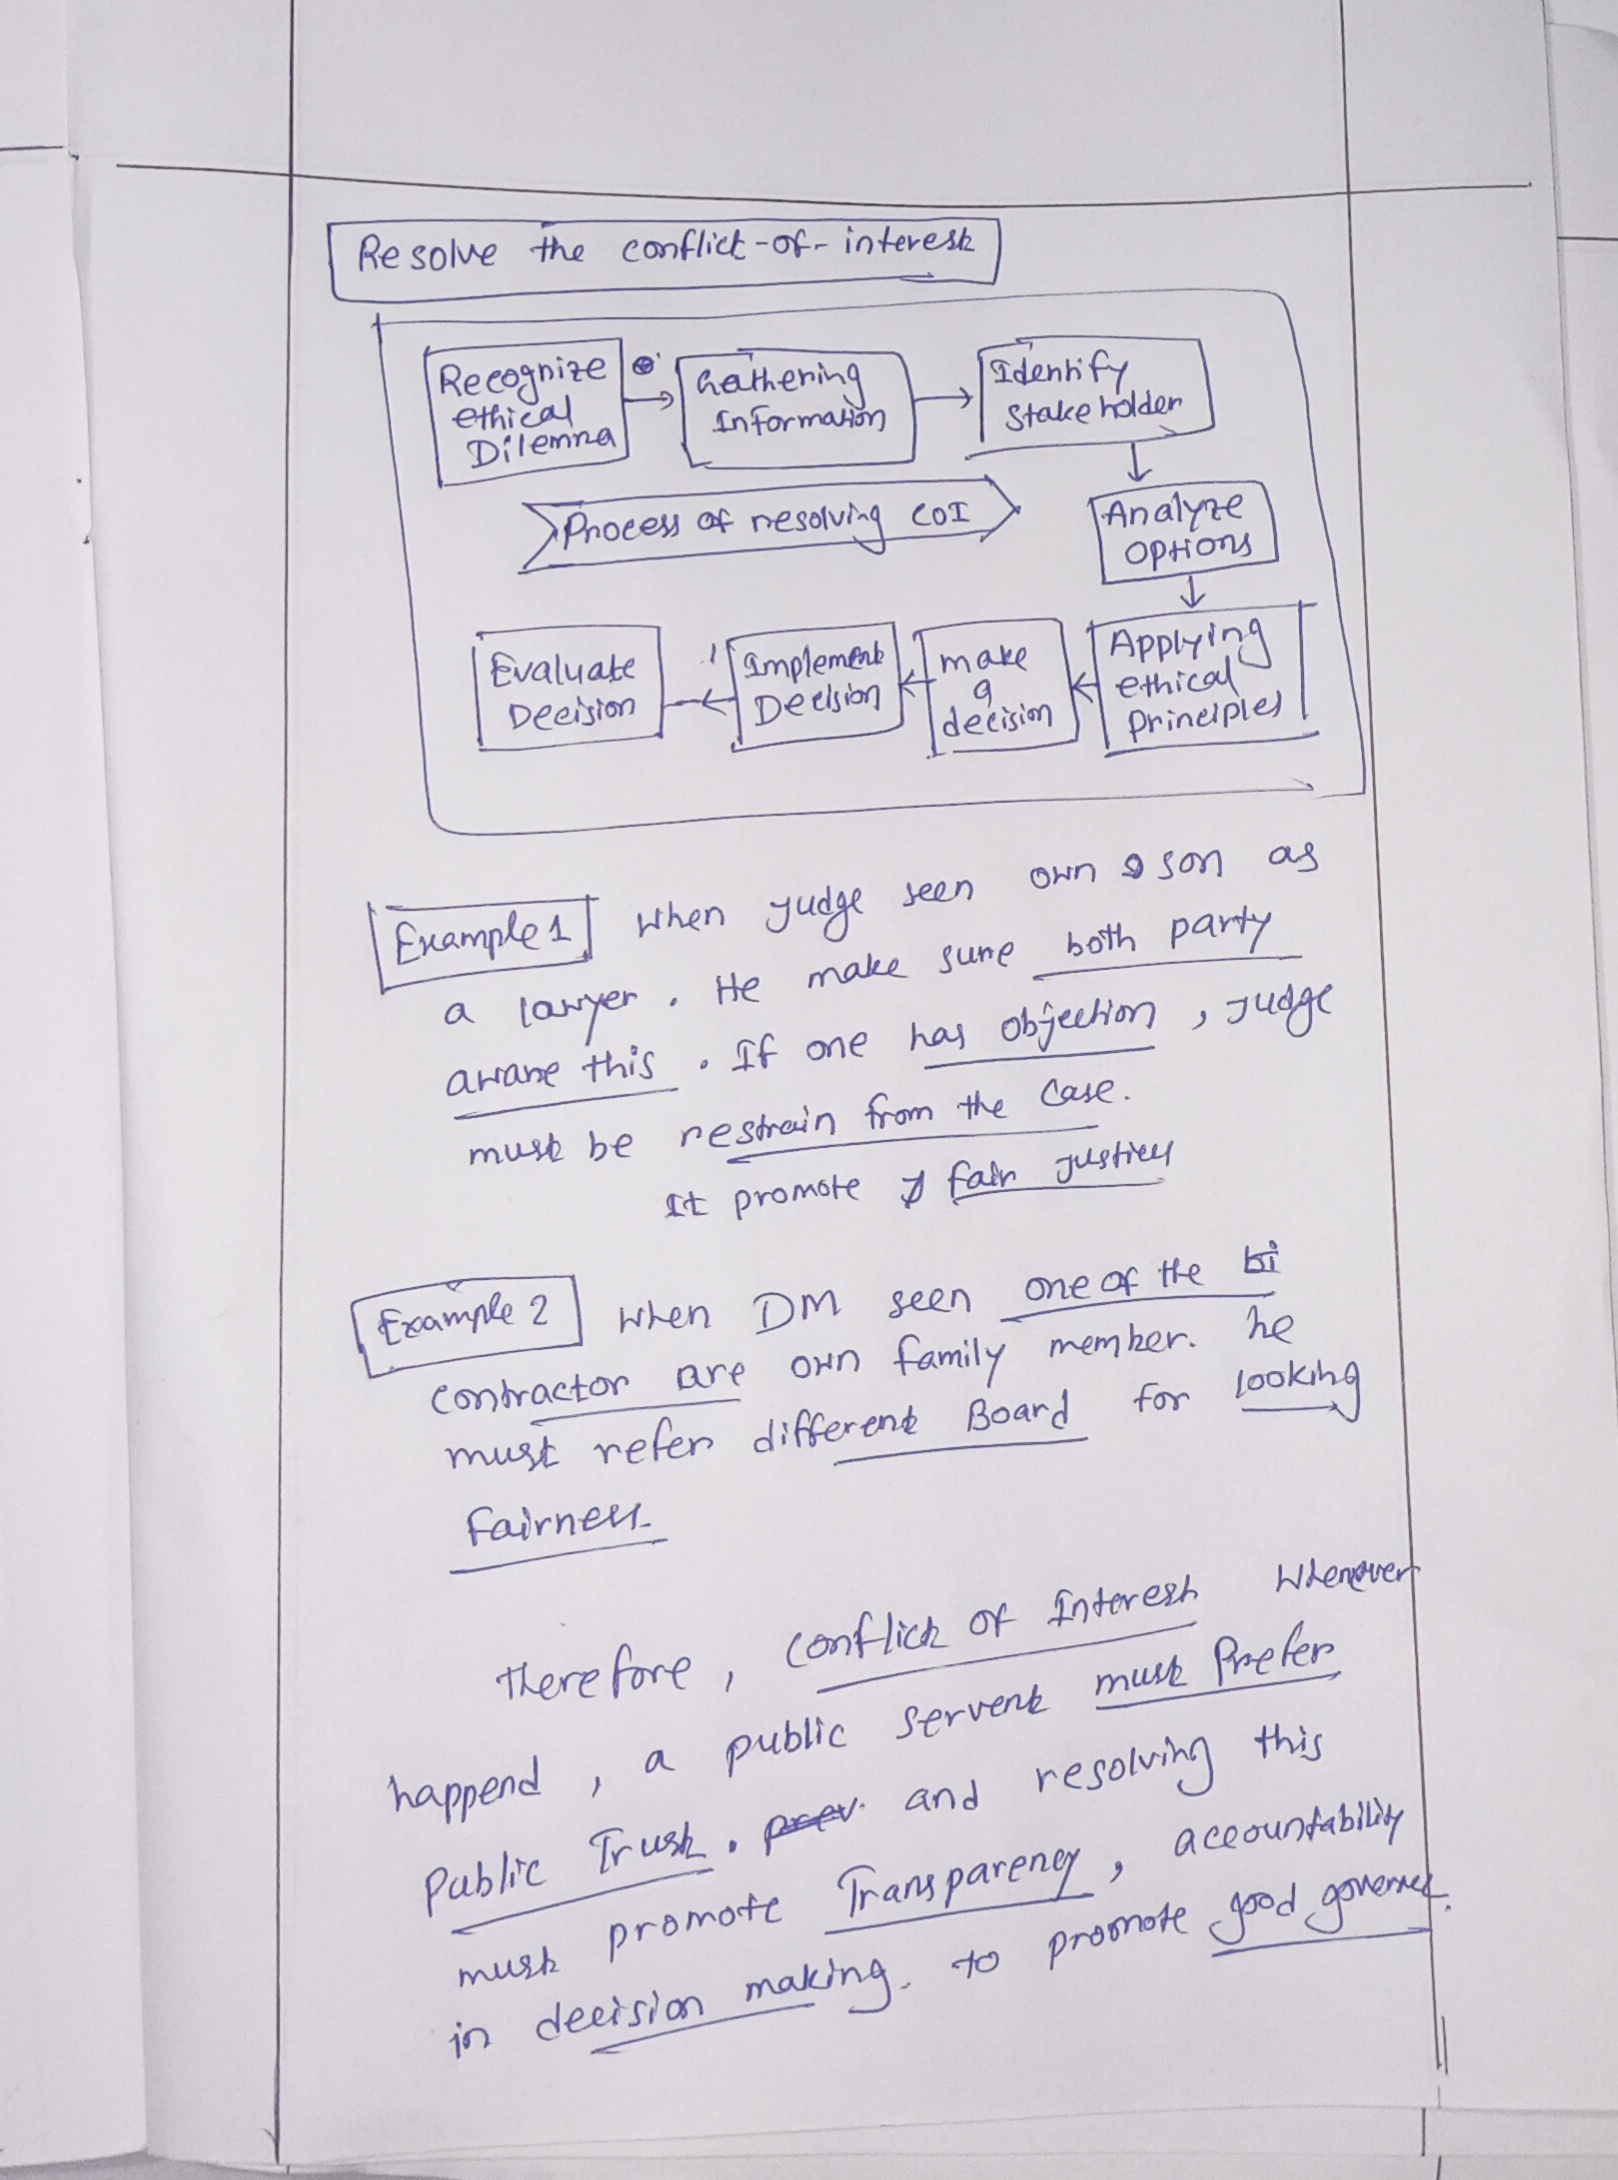 Resolve the conflict-of-interest
Recognize
ethical
Dilemna
Gathering
Information
Identify
Stakeholder
Process of resolving COI
Analyze
options
Applying
ethical
principles
make
a
decision
Implement
Decision
Evaluate
Decision
Example 1 when judge seen own son as
a lawyer. He make sure both party
aware this. If one has objection, judge
must be restrain from the case.
It promote fair justice
Example 2 when DM seen one of the bi
contractor are own family member. he
must refer different Board for looking
fairness.
Therefore, conflict of Interest whenever
happend, a public servent must Prefer
Public Trust. prev. and resolving this
must promote Transparency, accountability
in decision making. to promote good governce.